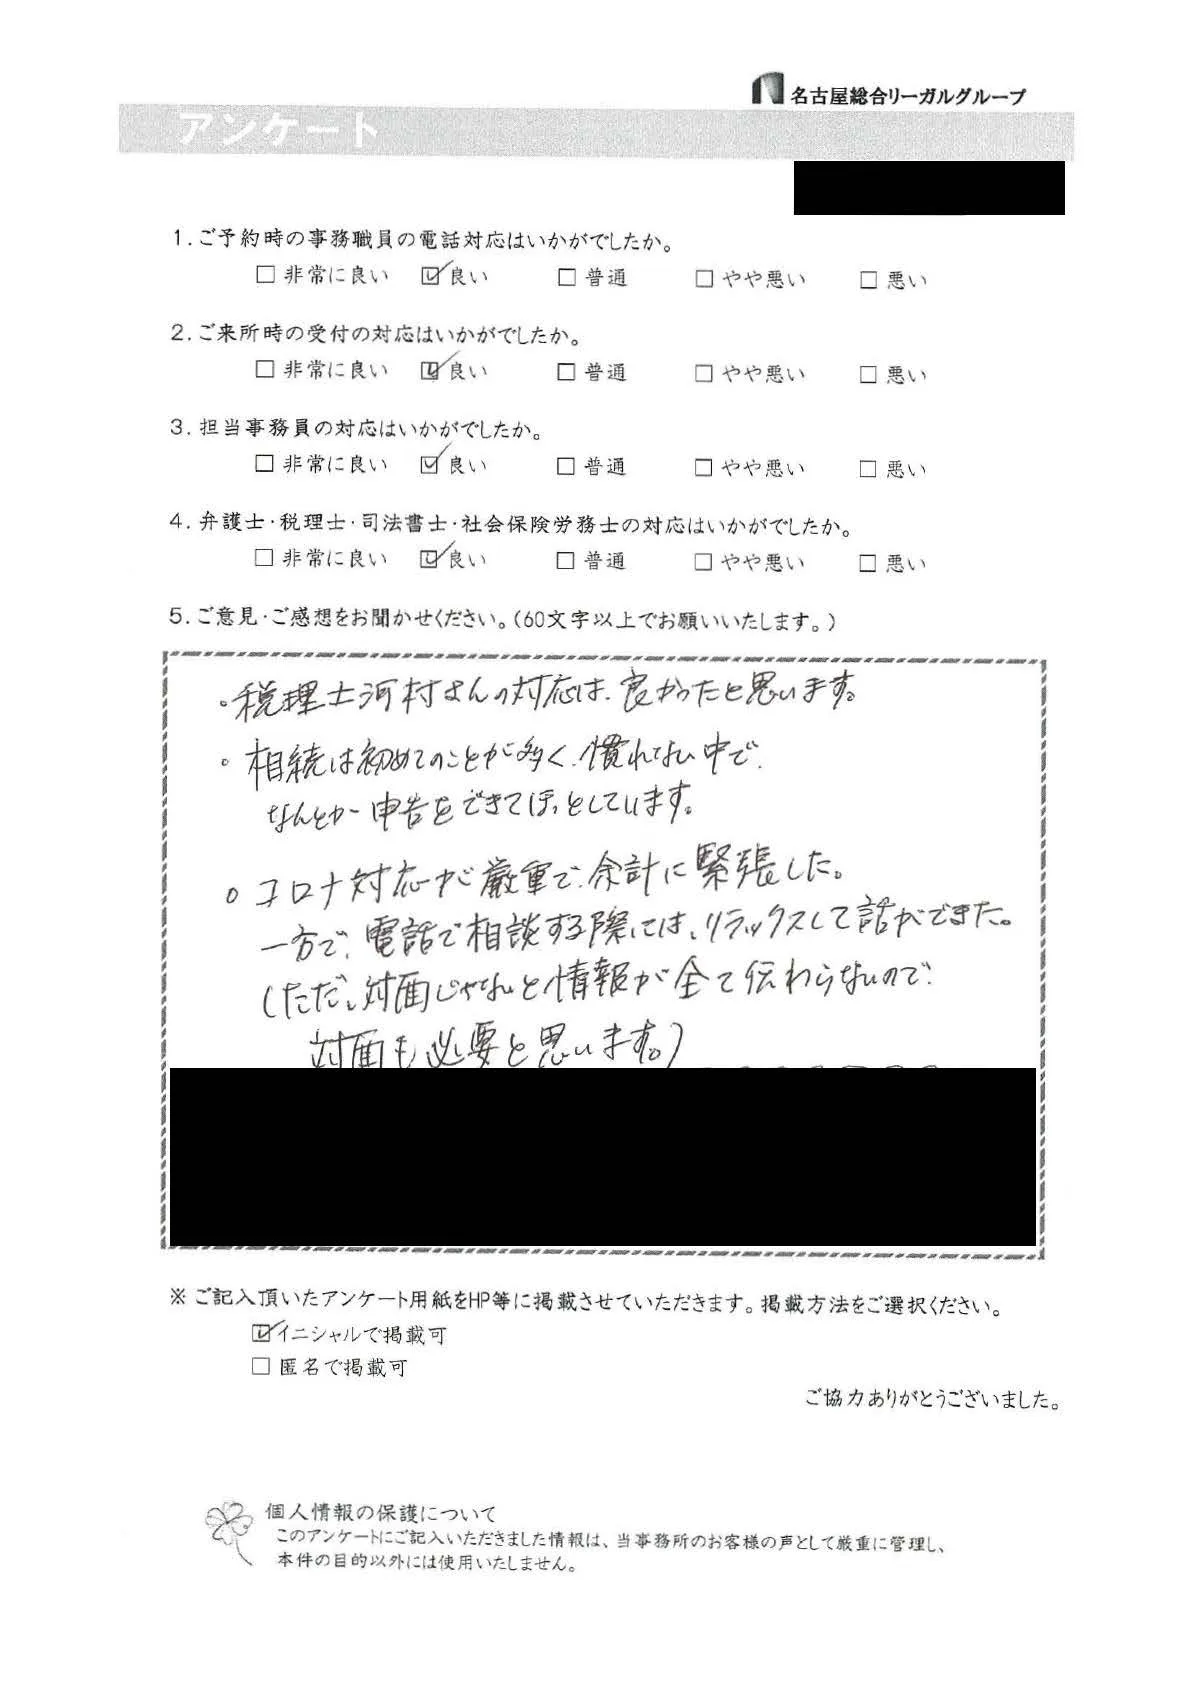 名古屋総合リーガルグループ
アンケート
1.ご予約時の事務職員の電話対応はいかがでしたか。
□ 非常に良い ☑ 良い □ 普通 □ やや悪い □ 悪い
2.ご来所時の受付の対応はいかがでしたか。
□ 非常に良い ☑ 良い □ 普通 □ やや悪い □ 悪い
3.担当事務員の対応はいかがでしたか。
□ 非常に良い ☑ 良い □ 普通 □ やや悪い □ 悪い
4.弁護士・税理士・司法書士・社会保険労務士の対応はいかがでしたか。
□ 非常に良い ☑ 良い □ 普通 □ やや悪い □ 悪い
5.ご意見・ご感想をお聞かせください。(60文字以上でお願いいたします。)
。税理士河村さんの対応は、良かったと思います。
。相続は初めてのことが多く、慣れてない中で、
なんとか申告をできてほっとしています。
。コロナ対応が厳重で、余計に緊張した。
一方で、電話で相談する際には、リラックスして話ができた。
(ただ、対面じゃないと情報が全て伝わらないので、
対面も必要と思います。)
※ ご記入頂いたアンケート用紙をHP等に掲載させていただきます。掲載方法をご選択ください。
☑ イニシャルで掲載可
□ 匿名で掲載可
ご協力ありがとうございました。
個人情報の保護について
このアンケートにご記入いただきました情報は、当事務所のお客様の声として厳重に管理し、
本件の目的以外には使用いたしません。